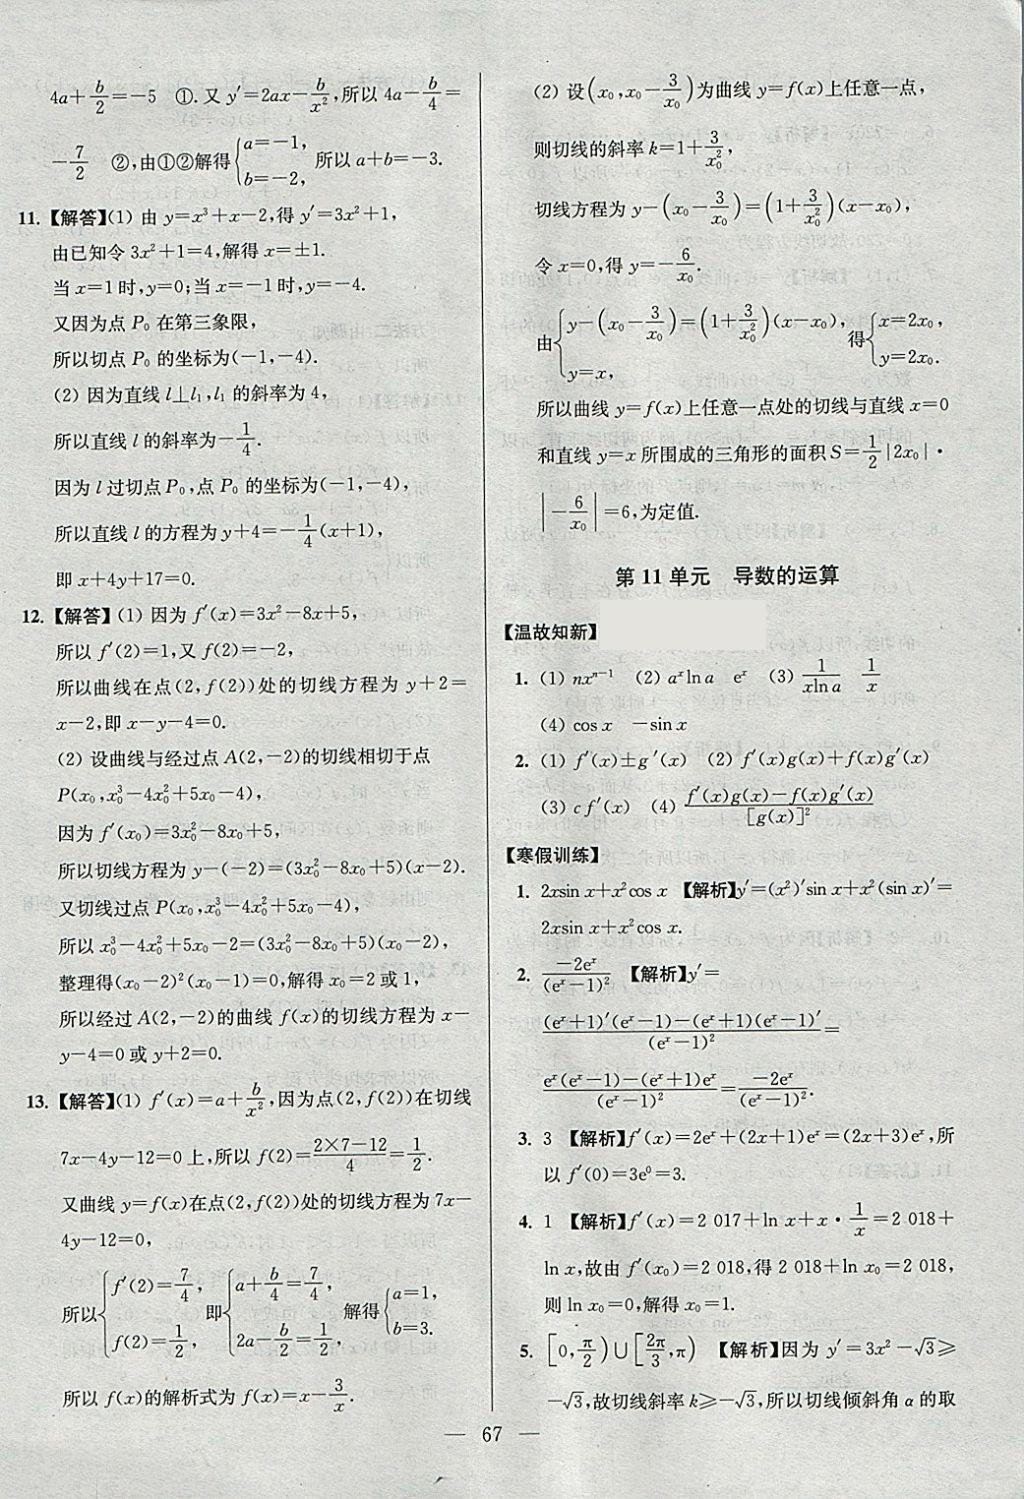 4a+b/2=-5 ①.又 y′=2ax-b/x²,所以 4a-b/4=
-7/2 ②,由①②解得{a=-1, b=-2, 所以 a+b=-3.
11.【解答】(1) 由 y=x³+x-2,得 y′=3x²+1,
由已知令 3x²+1=4,解得 x=±1.
当 x=1 时,y=0;当 x=-1 时,y=-4.
又因为点 P₀ 在第三象限,
所以切点 P₀ 的坐标为(-1,-4).
(2) 因为直线 l⊥l₁,l₁ 的斜率为 4,
所以直线 l 的斜率为-1/4.
因为 l 过切点 P₀,点 P₀ 的坐标为(-1,-4),
所以直线 l 的方程为 y+4=-1/4(x+1),
即 x+4y+17=0.
12.【解答】(1) 因为 f′(x)=3x²-8x+5,
所以 f′(2)=1,又 f(2)=-2,
所以曲线在点(2,f(2))处的切线方程为 y+2=
x-2,即 x-y-4=0.
(2) 设曲线与经过点 A(2,-2)的切线相切于点
P(x₀,x₀³-4x₀²+5x₀-4),
因为 f′(x₀)=3x₀²-8x₀+5,
所以切线方程为 y-(-2)=(3x₀²-8x₀+5)(x-2).
又切线过点 P(x₀,x₀³-4x₀²+5x₀-4),
所以 x₀³-4x₀²+5x₀-2=(3x₀²-8x₀+5)(x₀-2),
整理得(x₀-2)²(x₀-1)=0,解得 x₀=2 或 1,
所以经过 A(2,-2)的曲线 f(x)的切线方程为 x-
y-4=0 或 y+2=0.
13.【解答】(1) f′(x)=a+b/x²,因为点(2,f(2))在切线
7x-4y-12=0 上,所以 f(2)=(2×7-12)/4=1/2.
又曲线 y=f(x)在点(2,f(2))处的切线方程为 7x-
4y-12=0,
所以{f′(2)=7/4, f(2)=1/2, 即{a+b/4=7/4, 2a-b/2=1/2, 解得{a=1, b=3.
所以 f(x)的解析式为 f(x)=x-3/x.
(2) 设(x₀,x₀-3/x₀)为曲线 y=f(x)上任意一点,
则切线的斜率 k=1+3/x₀²,
切线方程为 y-(x₀-3/x₀)=(1+3/x₀²)(x-x₀),
令 x=0,得 y=-6/x₀.
由{y-(x₀-3/x₀)=(1+3/x₀²)(x-x₀), y=x, 得{x=2x₀, y=2x₀.
所以曲线 y=f(x)上任意一点处的切线与直线 x=0
和直线 y=x 所围成的三角形的面积 S=1/2|2x₀|·
|-6/x₀|=6,为定值.
第 11 单元 导数的运算
【温故知新】
1. (1) nxⁿ⁻¹ (2) aˣln a eˣ (3) 1/(xln a) 1/x
(4) cos x -sin x
2. (1) f′(x)±g′(x) (2) f′(x)g(x)+f(x)g′(x)
(3) c f′(x) (4) (f′(x)g(x)-f(x)g′(x))/[g(x)]²
【寒假训练】
1. 2xsin x+x²cos x 【解析】y′=(x²)′sin x+x²(sin x)′=
2xsin x+x²cos x.
2. -2eˣ/(eˣ-1)² 【解析】y′=
((eˣ+1)′(eˣ-1)-(eˣ+1)(eˣ-1)′)/(eˣ-1)²=
(eˣ(eˣ-1)-(eˣ+1)eˣ)/(eˣ-1)²=-2eˣ/(eˣ-1)².
3. 3 【解析】f′(x)=2eˣ+(2x+1)eˣ=(2x+3)eˣ,所
以 f′(0)=3e⁰=3.
4. 1 【解析】f′(x)=2 017+ln x+x·1/x=2 018+
ln x,故由 f′(x₀)=2 018,得 2 018+ln x₀=2 018,
则 ln x₀=0,解得 x₀=1.
5. [0,π/2)∪[2π/3,π) 【解析】因为 y′=3x²-√3≥
-√3,故切线斜率 k≥-√3,所以切线倾斜角 α 的取
— 67 —